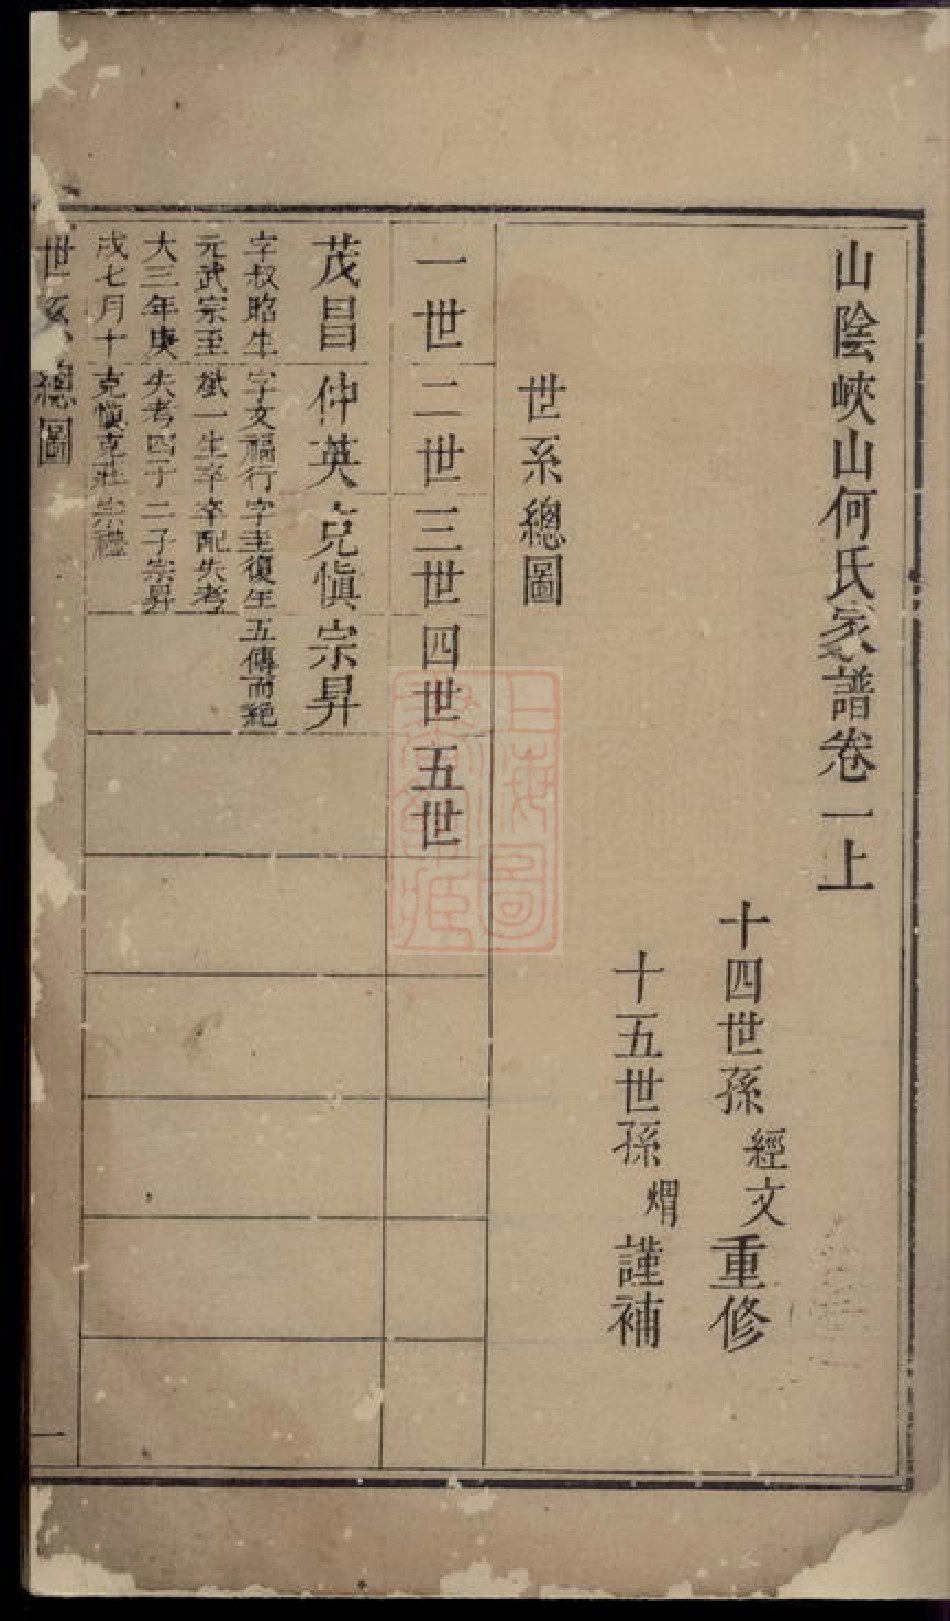 山陰峽山何氏家譜卷一上
十四世孫經文重修
十五世孫㷉謹補
世系總圖
一世 二世 三世 四世 五世
茂昌 仲英 克愼 宗昇
字叔昭生 字文福行 字圭復生 五傳而絕
元武宗至 斌一生卒 卒配失考
大三年庚 失考四子 二子宗昇
戌七月十 克愼克莊 宗禮
世系總圖 一
上海圖
書館藏